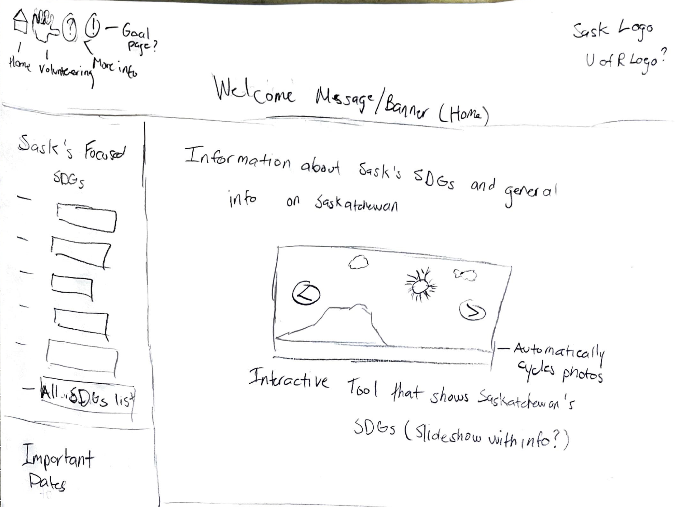 ? ! – Goal
page?
Home Volunteering More info
Sask Logo
U of R Logo?
Welcome Message/Banner (Home)
Sask's Focused
SDGs
–
–
–
–
–
– All SDGs list
Important
Dates
Information about Sask's SDGs and general
info on Saskatchewan
< >
– Automatically
cycles photos
Interactive Tool that shows Saskatchewan's
SDGs (Slideshow with info?)